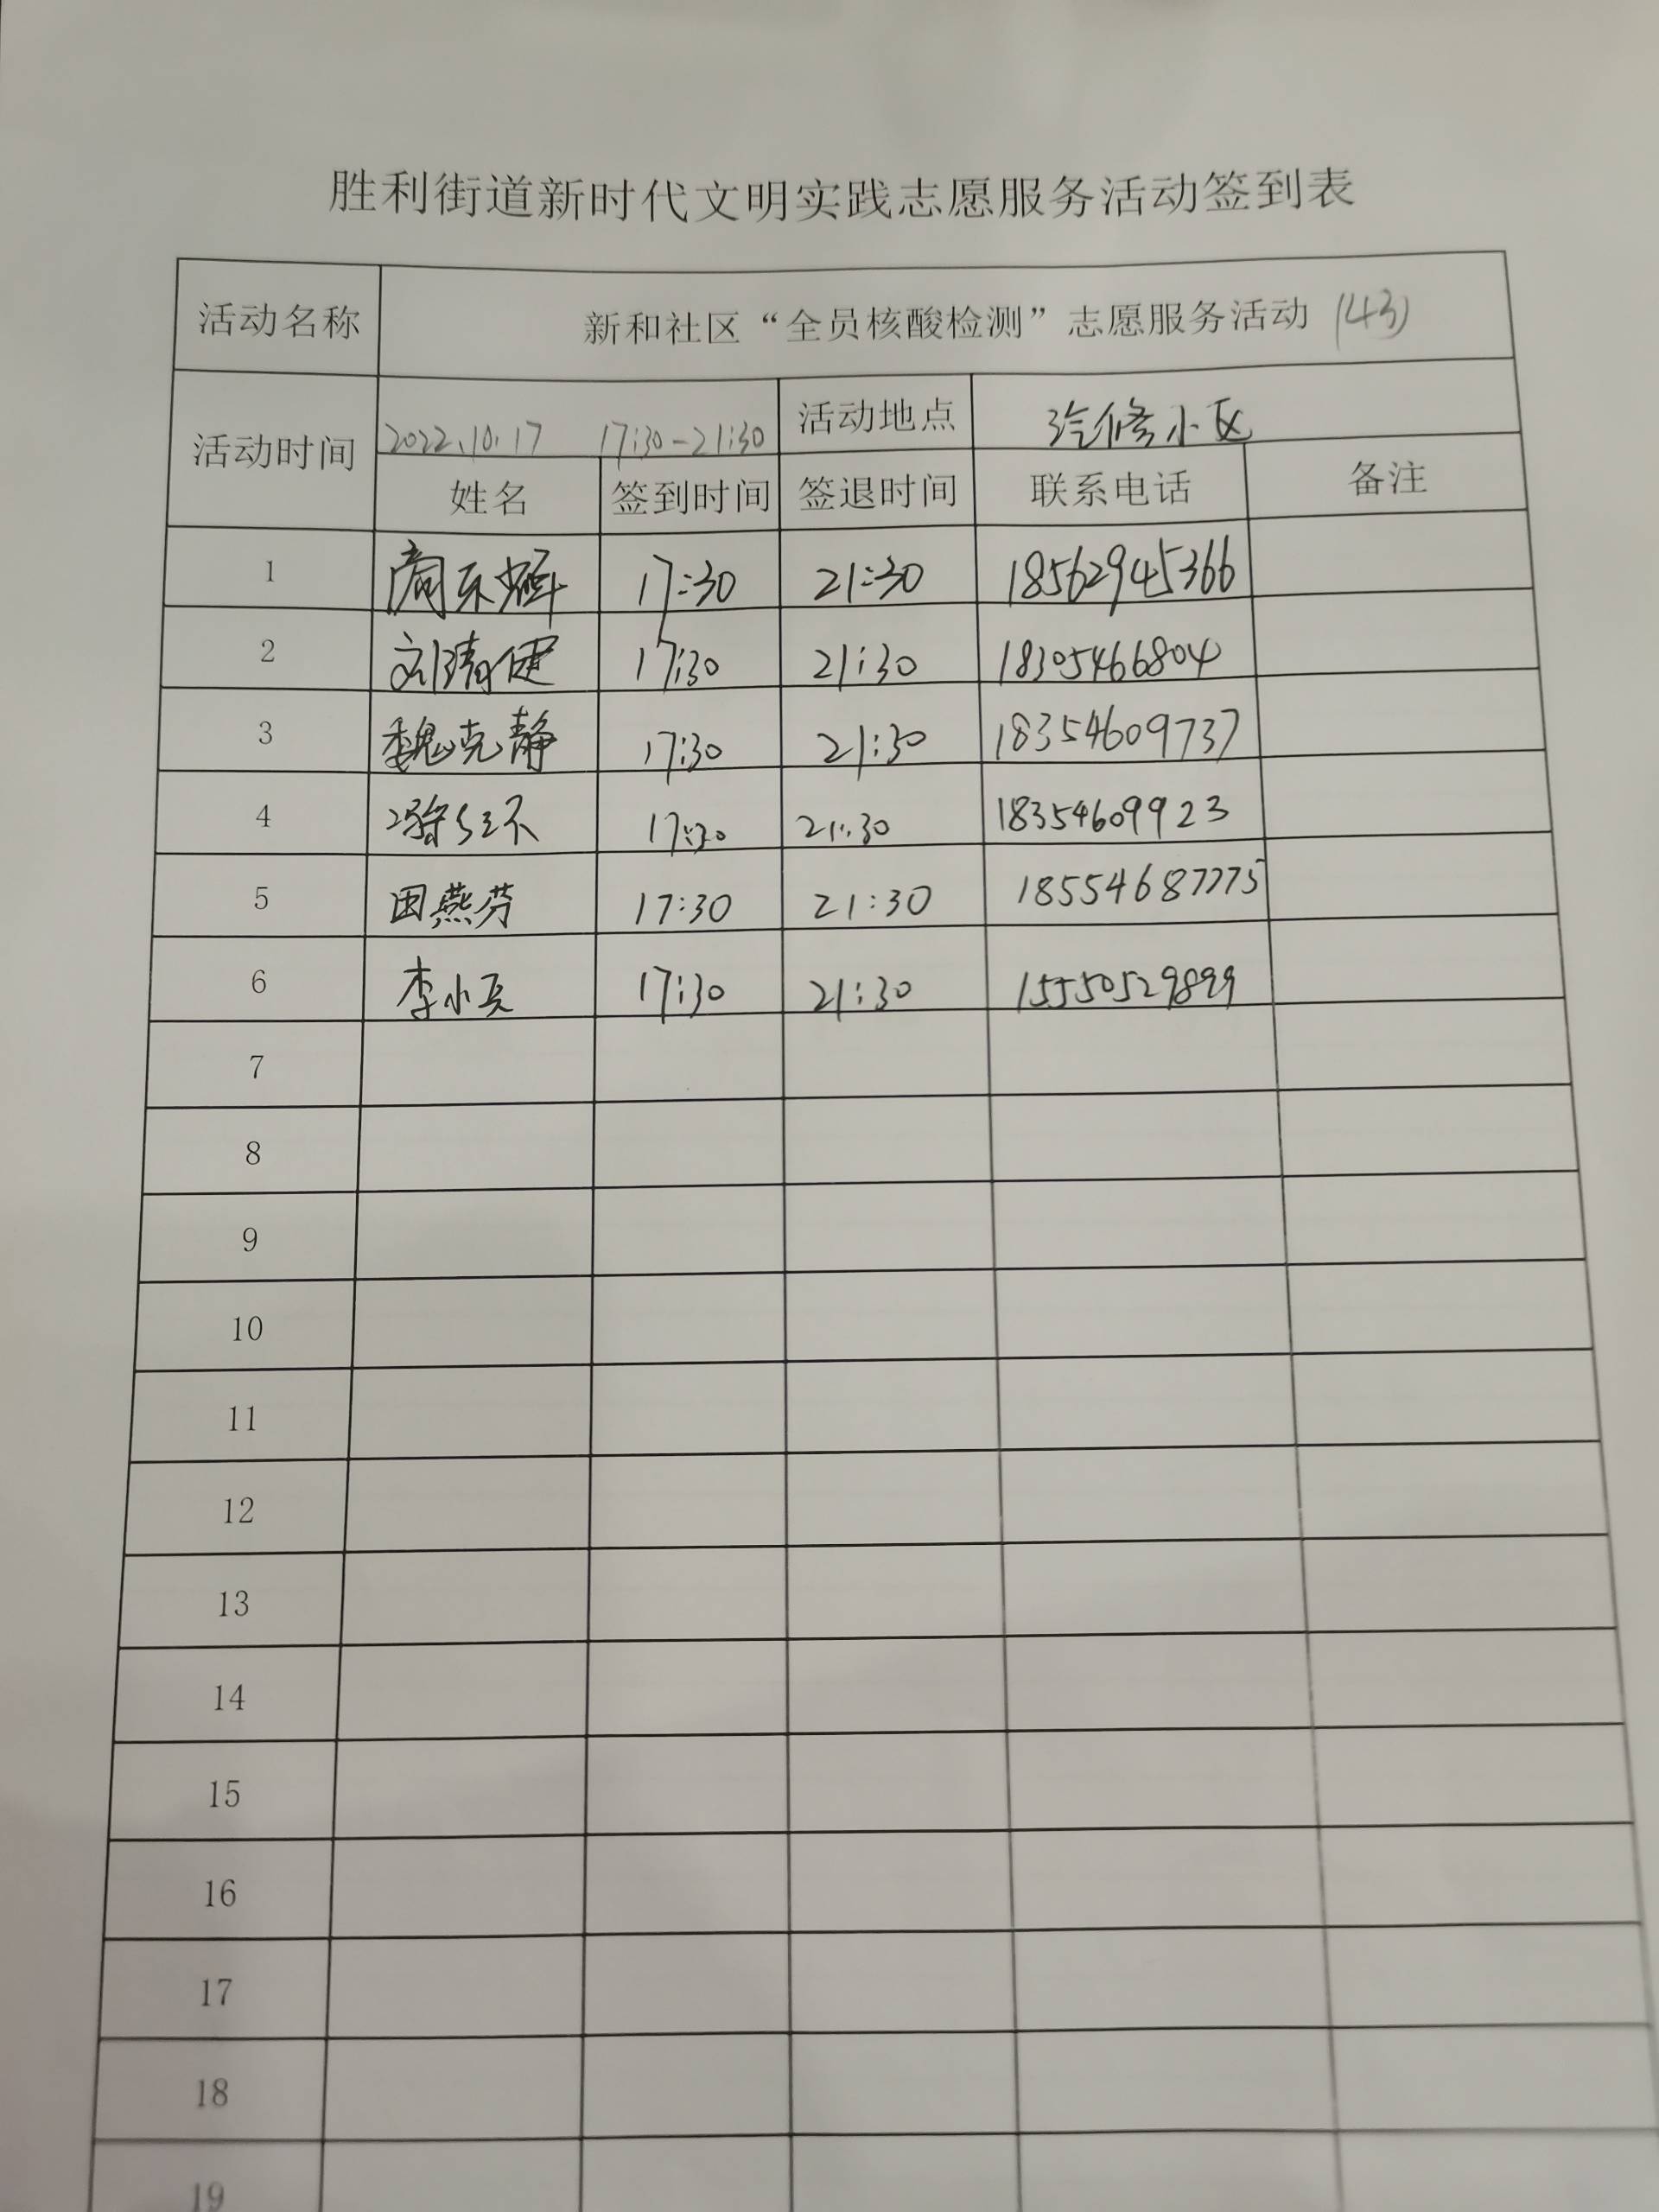 胜利街道新时代文明实践志愿服务活动签到表
活动名称 新和社区“全员核酸检测”志愿服务活动 (43)
活动时间 2022.10.17 17:30-21:30 活动地点 汽修小区
姓名 签到时间 签退时间 联系电话 备注
1 17:30 21:30 18562945366
2 刘清健 17:30 21:30 18305466804
3 魏克静 17:30 21:30 18354609737
4 17:30 21:30 18354609923
5 田燕芬 17:30 21:30 18554687775
6 李小兵 17:30 21:30 15550529899
7
8
9
10
11
12
13
14
15
16
17
18
19